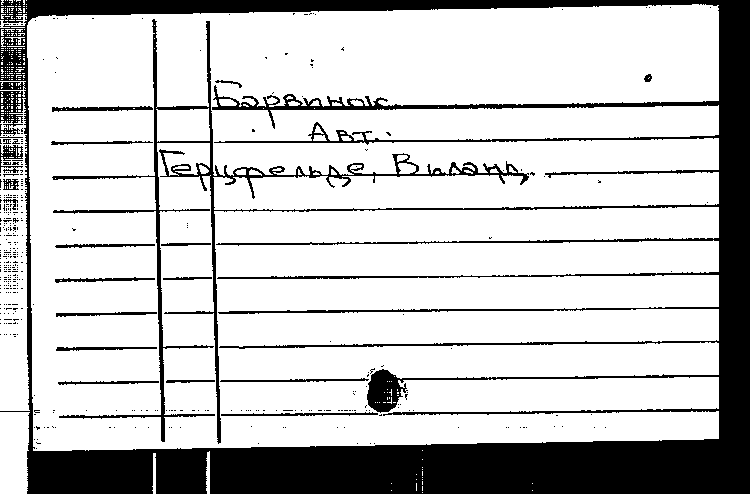 Барвинок
Авт.:
Герцфельде, Виланд.